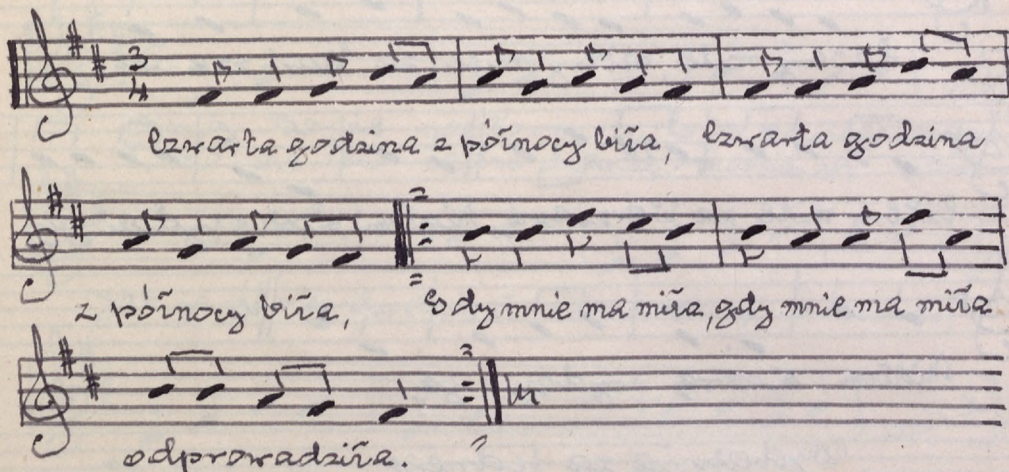 3
4
Czwarta godzina z północy biła, Czwarta godzina
z północy biła, Gdy mnie ma miła, gdy mnie ma miła
odprowadziła.